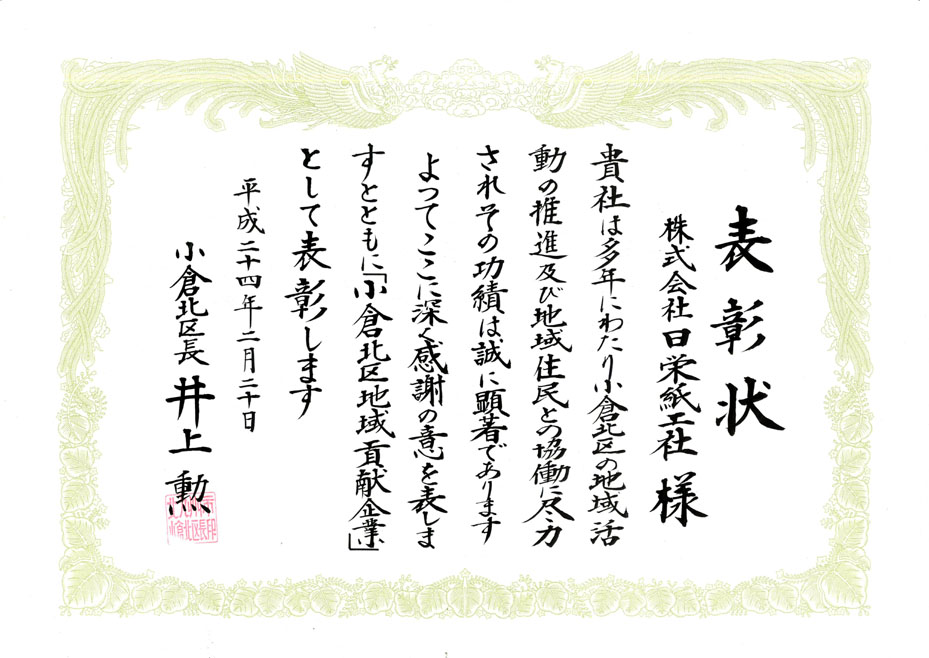 表彰状
株式会社日栄紙工社 様
貴社は多年にわたり小倉北区の地域活
動の推進及び地域住民との協働に尽力
されその功績は誠に顕著であります
よってここに深く感謝の意を表しま
すとともに「小倉北区地域貢献企業」
として表彰します
平成二十四年二月二十日
小倉北区長 井上 勲
小倉北区長印